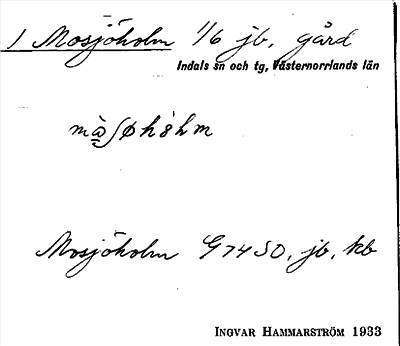 1 Mosjöholm 1/6 jb, gård
Indals sn och tg, Västernorrlands län
Mosjöholm G7450, jb, kb
INGVAR HAMMARSTRÖM 1933